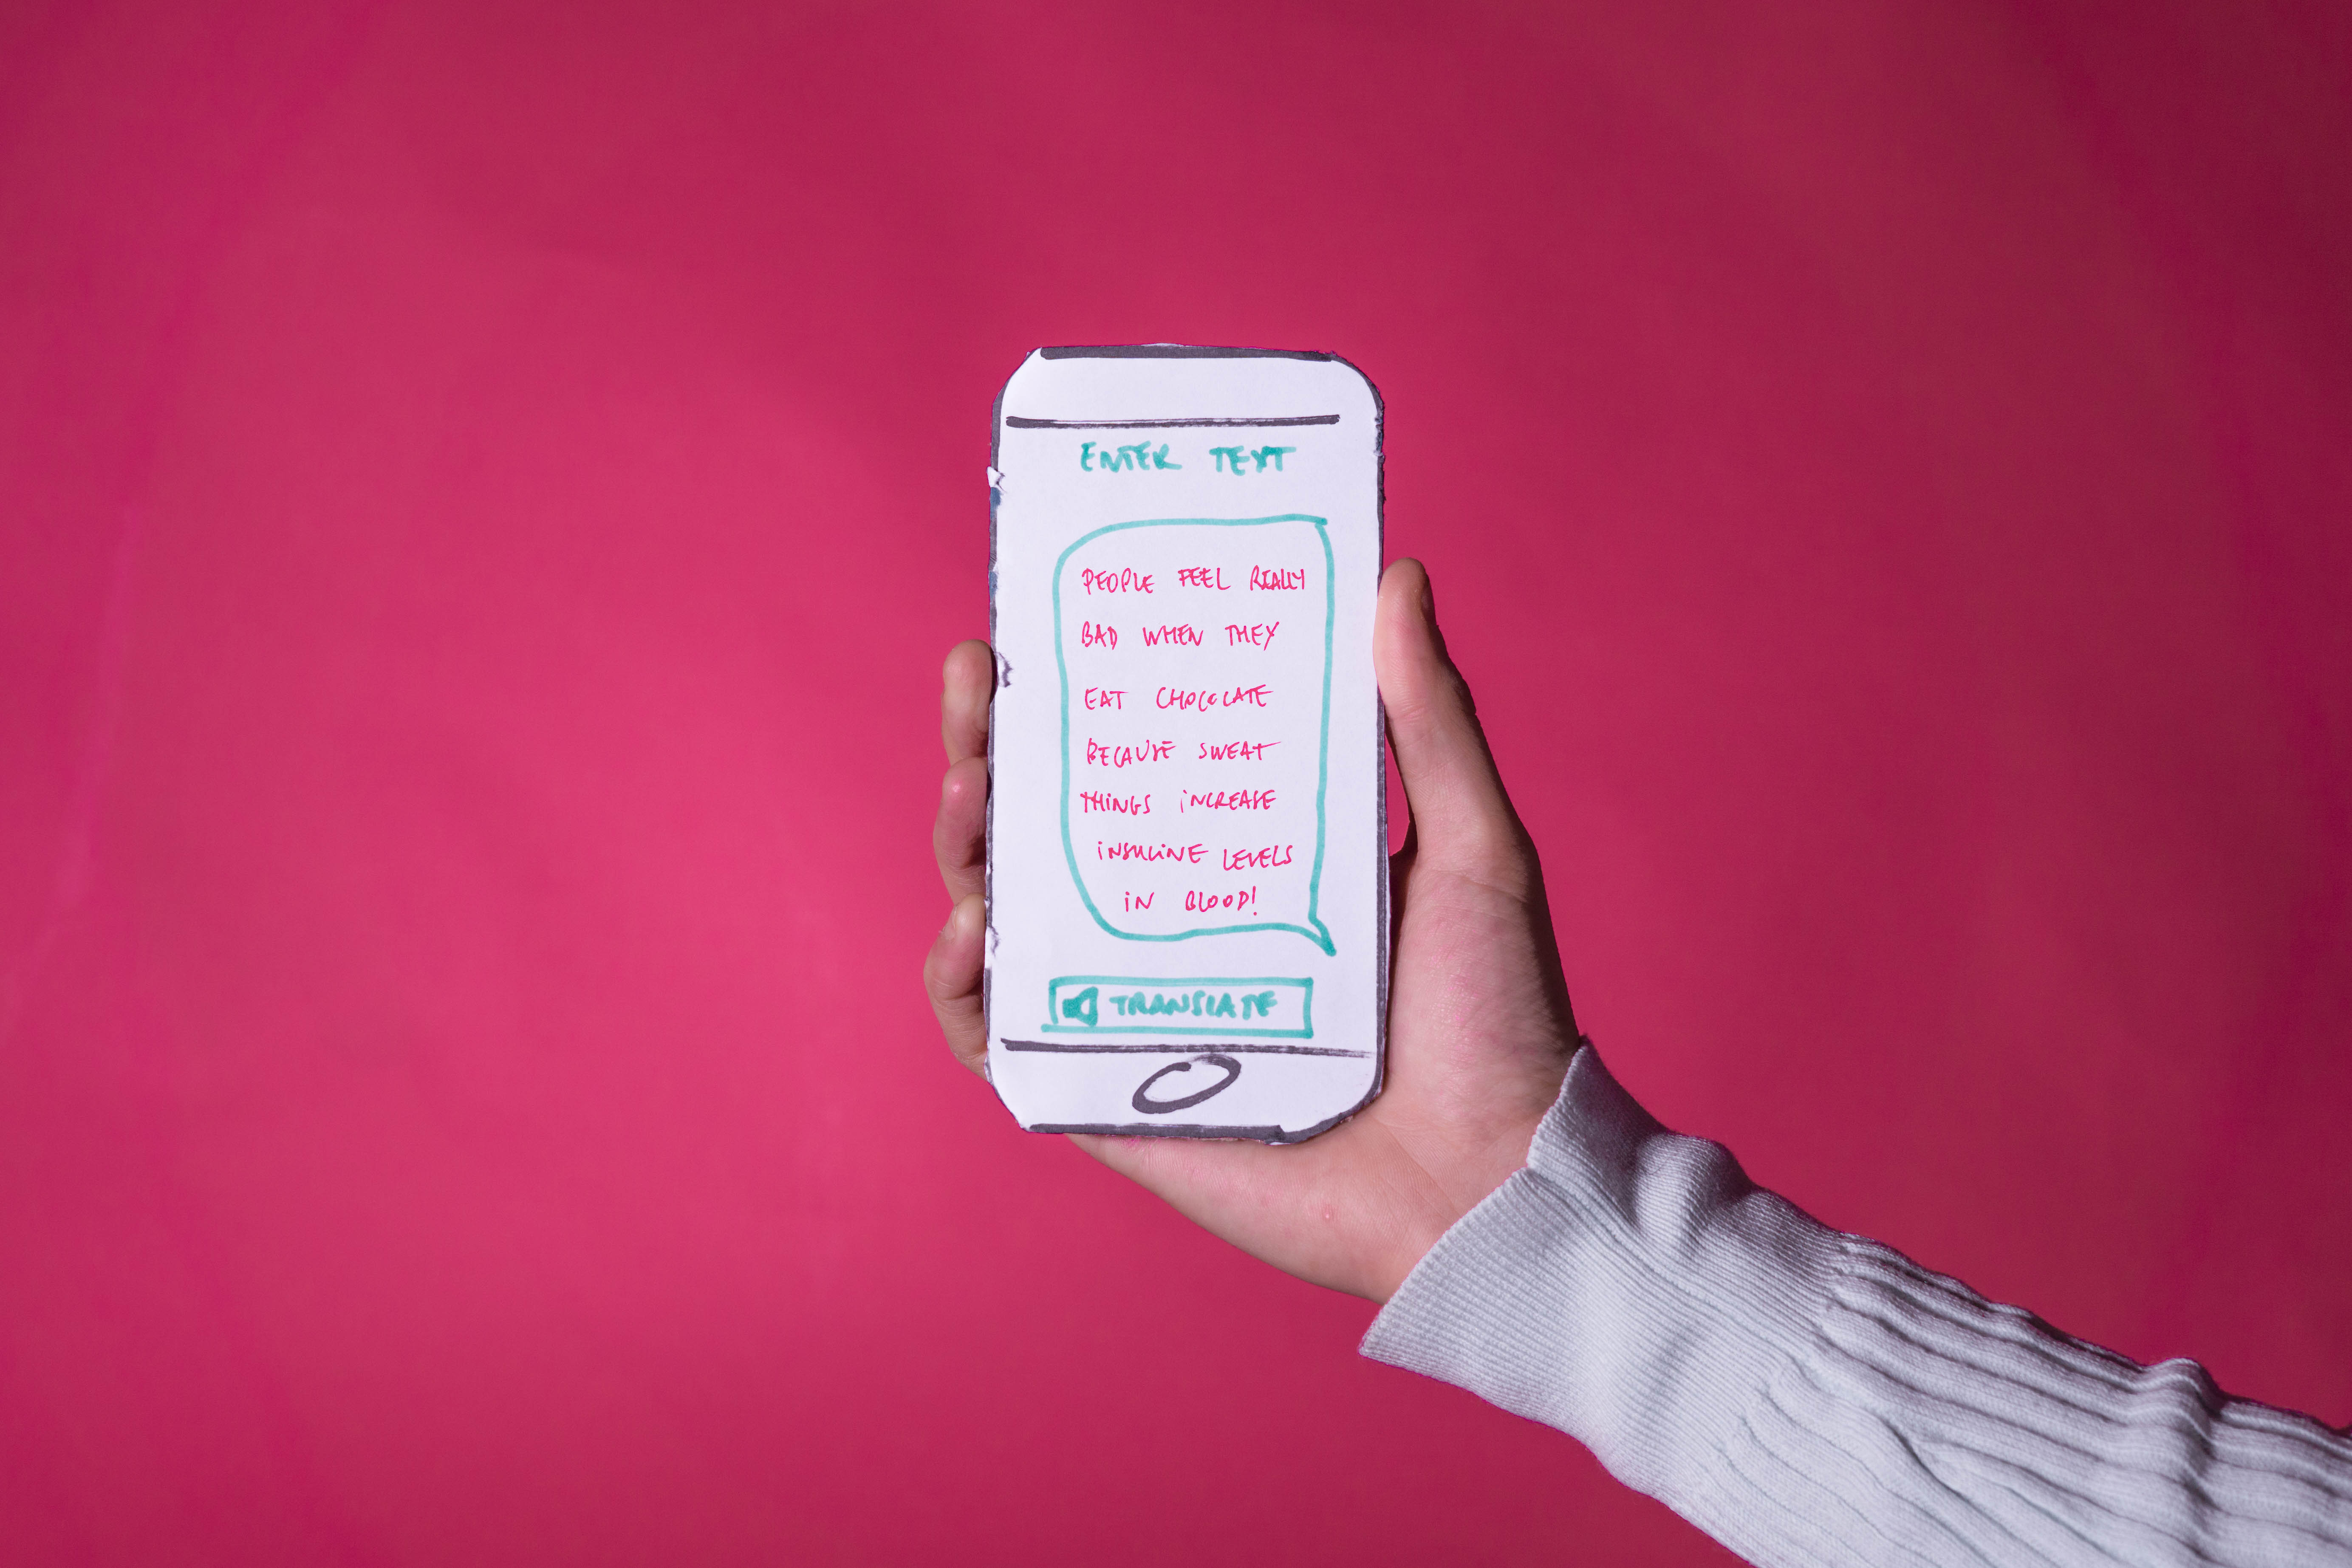 ENTER TEXT
PEOPLE FEEL REALLY
BAD WHEN THEY
EAT CHOCOLATE
BECAUSE SWEAT
THINGS INCREASE
INSULINE LEVELS
IN BLOOD!
TRANSLATE